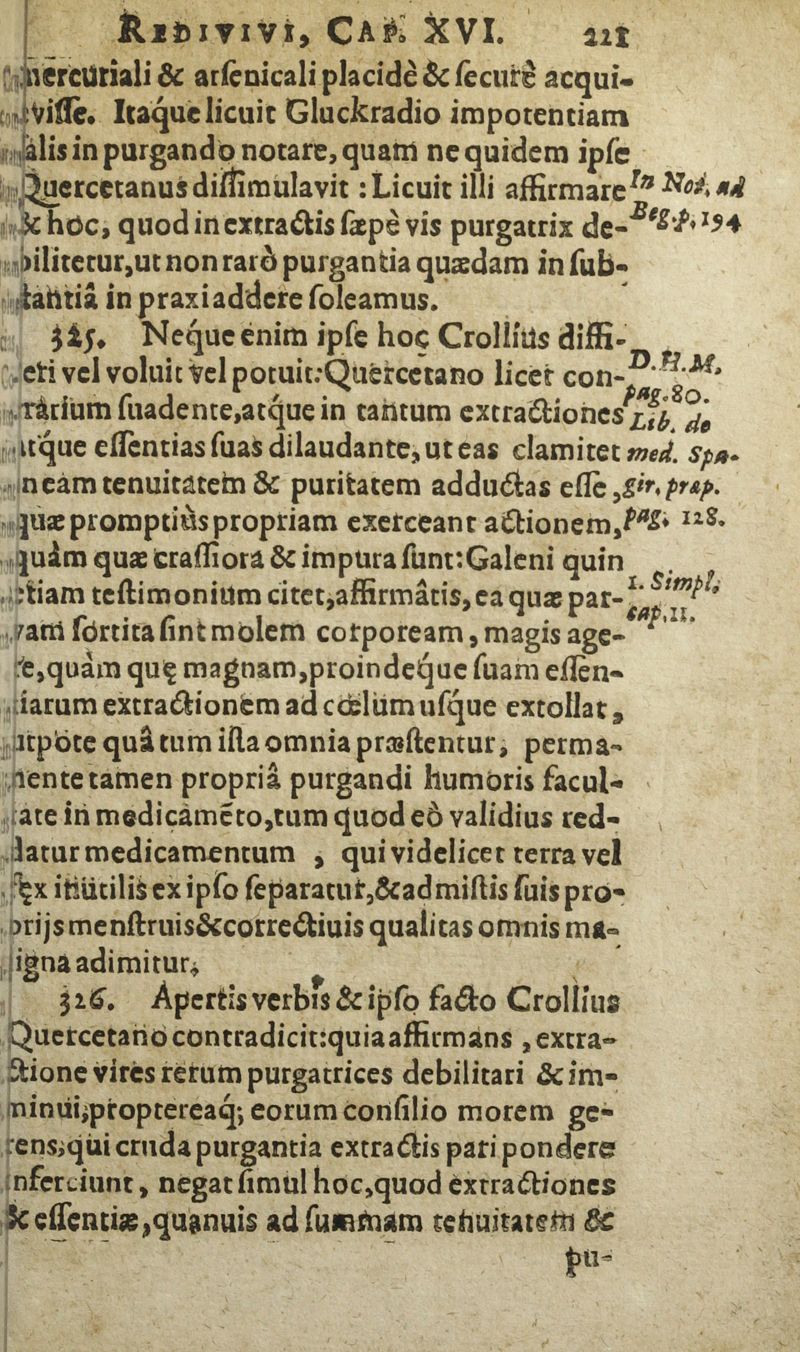 REDIVIVI, CAP. XVI. 221
mercuriali & arſenicali placidè & ſecurè acqui-
viſſe. Itaque licuit Gluckradio impotentiam
ſalis in purgando notare, quam ne quidem ipſe
Quercetanus diſſimulavit : Licuit illi affirmare
In Not. ad
Beg. p. 194
& hoc, quod in extractis ſæpè vis purgatrix de-
bilitetur, ut non rarò purgantia quædam in ſub-
ſtantiâ in praxi addere ſoleamus.
325. Neque enim ipſe hoc Crollius diffi-
teri vel voluit vel potuit: Quercetano licet con-
D. H. M.
pag. 80.
trarium ſuadente, atque in tantum extractiones
Lib. de
med. Spa-
gir. præp.
pag. 128.
atque eſſentias ſuas dilaudante, ut eas clamitet
in eam tenuitatem & puritatem adductas eſſe,
quæ promptiùs propriam exerceant actionem,
quàm quæ craſſiora & impura ſunt: Galeni quin
etiam teſtimonium citet, affirmâtis, ea quæ par-
1. Simpl.
cap. 11.
vam ſortita ſint molem corpoream, magis age-
re, quàm quę magnam, proindeque ſuam eſſen-
tiarum extractionem ad cœlum uſque extollat,
utpote quâ tum iſta omnia præſtentur, perma-
nente tamen propriâ purgandi humoris facul-
tate in medicamēto, tum quod eò validius red-
datur medicamentum , qui videlicet terra vel
fęx inutilis ex ipſo ſeparatur, & admiſtis ſuis pro-
prijs menſtruis & correctiuis qualitas omnis ma-
ligna adimitur.
326. Apertis verbis & ipſo facto Crollius
Quercetano contradicit: quia affirmans , extra-
ctione vires rerum purgatrices debilitari & im-
minui, proptereaq; eorum conſilio morem ge-
rens, qui cruda purgantia extractis pari pondere
inferciunt, negat ſimul hoc, quod extractiones
& eſſentiæ, quanuis ad ſummam tenuitatem &
pu-